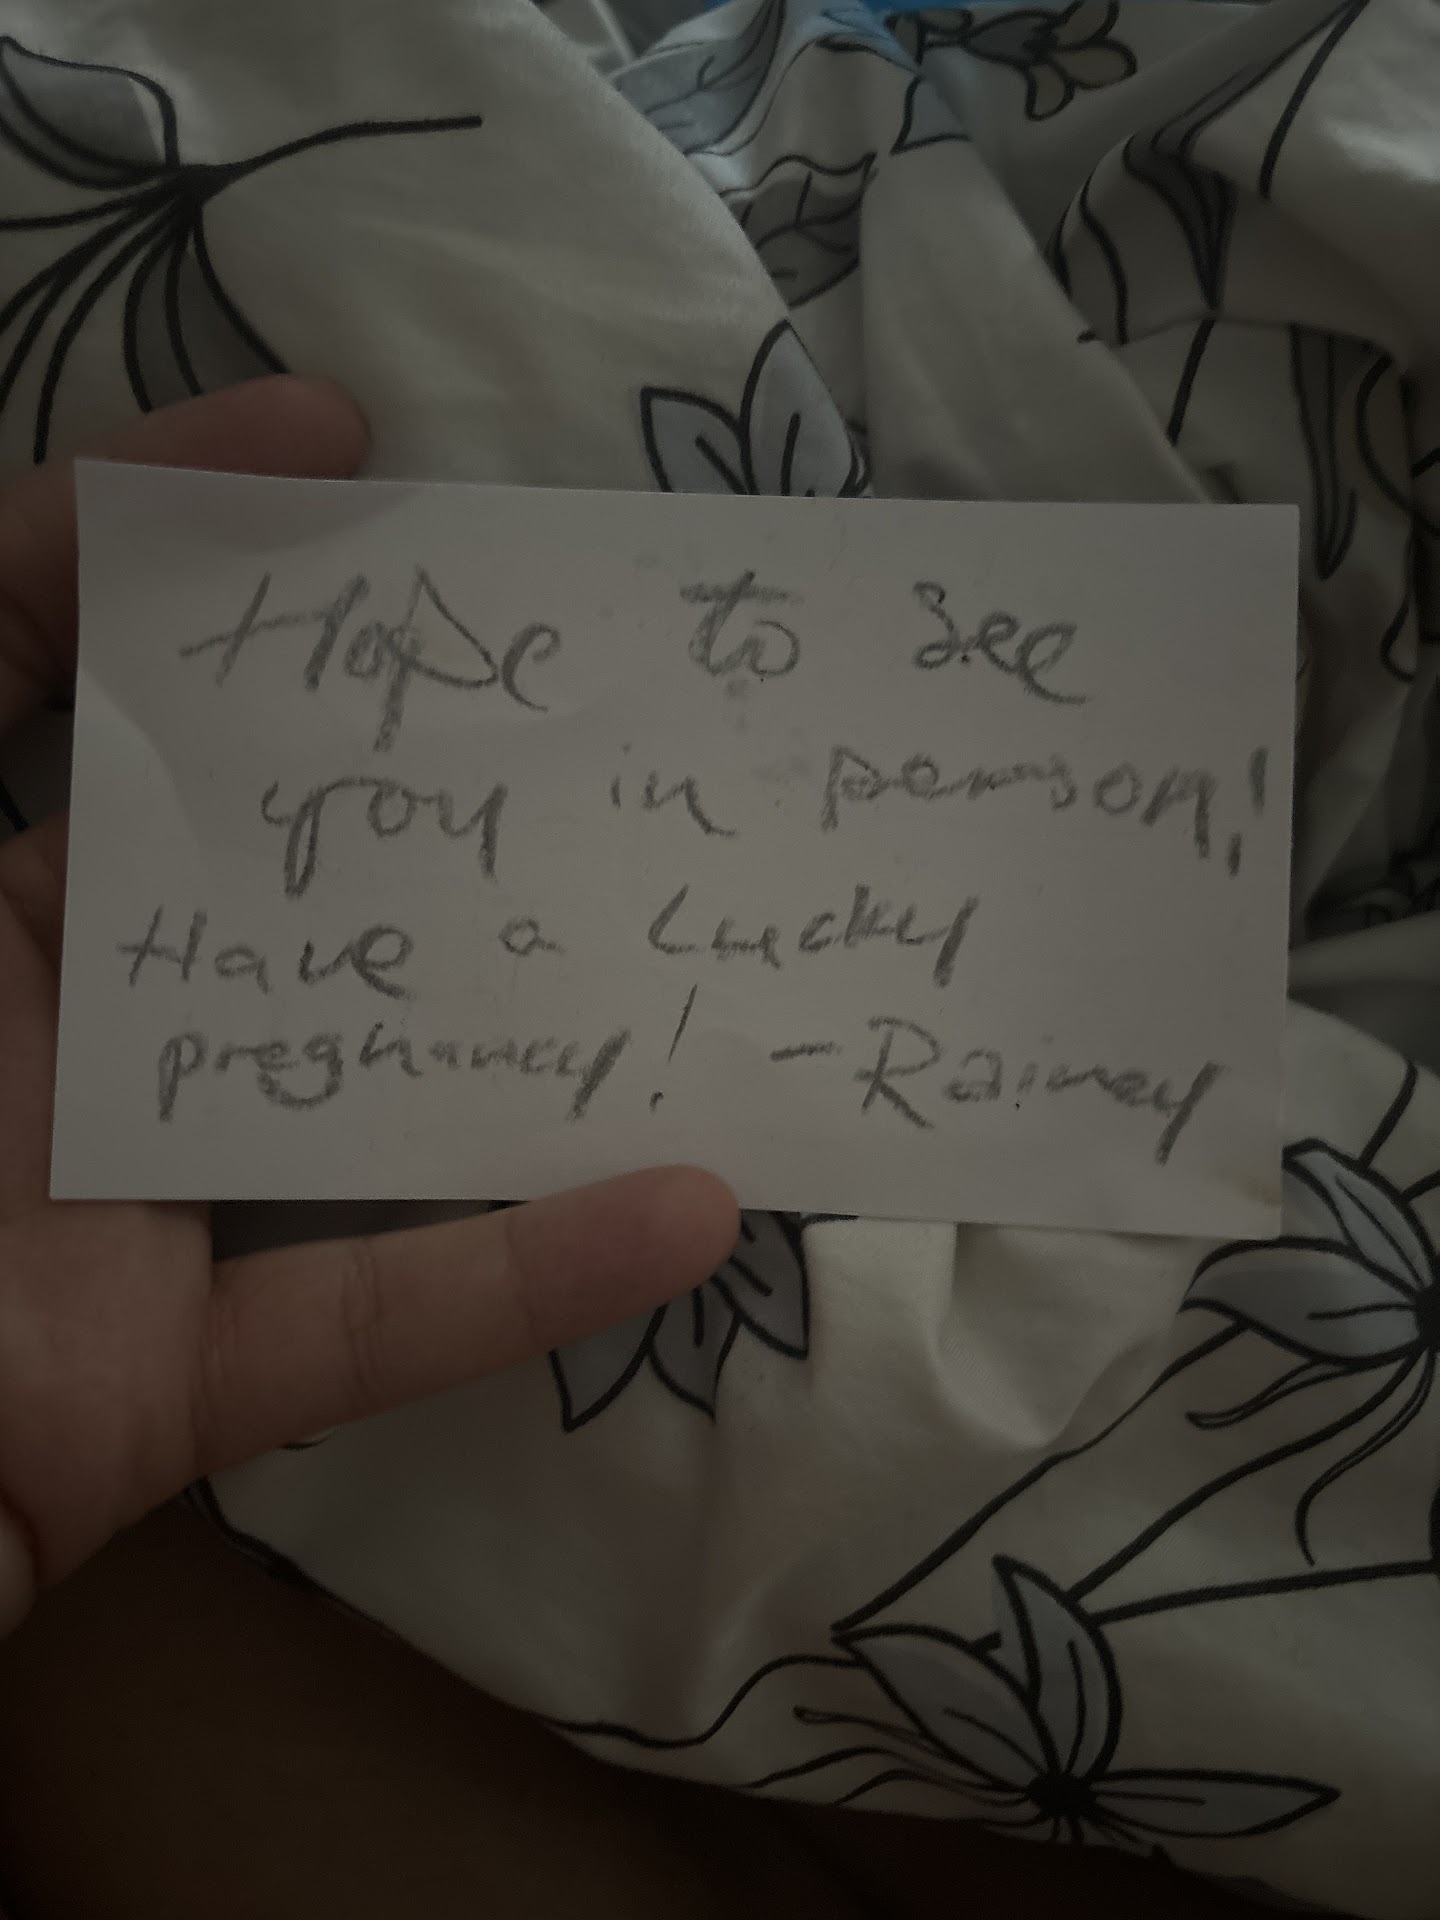 Hope to see
you in person!
Have a Lucky
pregnancy! - Rainey